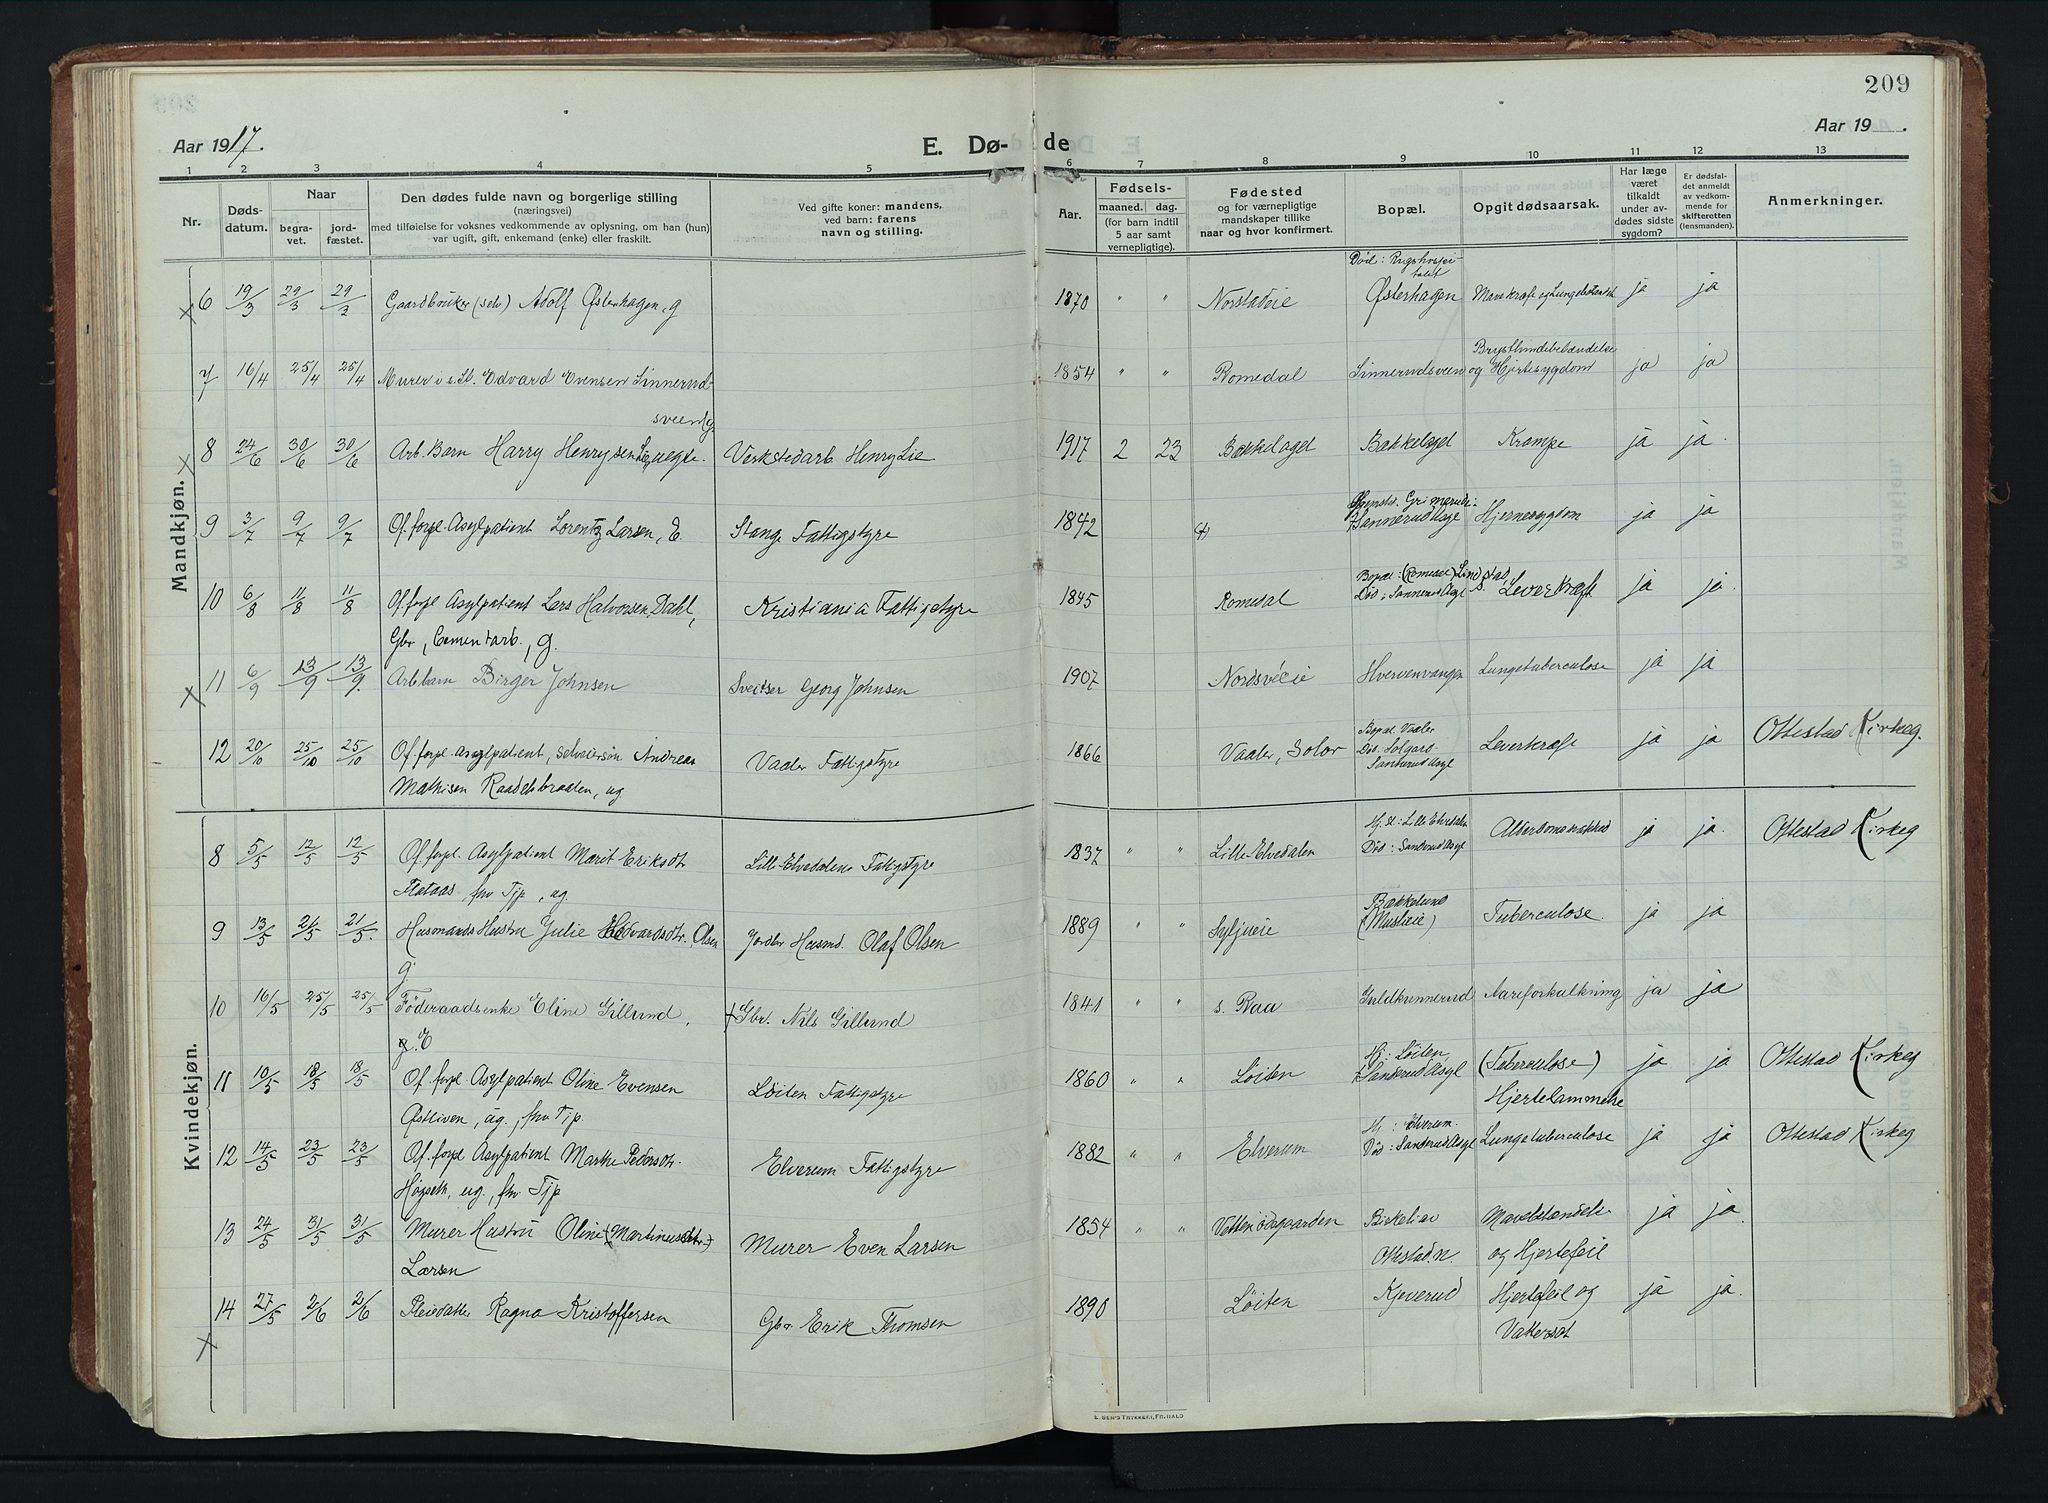 209
Aar 1917.
E. Dø-de
Aar 19 .
1 2 3 4 5 6 7 8 9 10 11 12 13
Nr.
Døds-
datum.
Naar
begra-
vet.
jord-
fæstet.
Den dødes fulde navn og borgerlige stilling
(næringsvei)
med tilføielse for voksnes vedkommende av oplysning, om han (hun)
var ugift, gift, enkemand (enke) eller fraskilt.
Ved gifte koner: mandens,
ved barn: farens
navn og stilling.
Aar.
Fødsels-
maaned. dag.
(for barn indtil
5 aar samt
vernepligtige).
Fødested
og for værnepligtige
mandskaper tillike
naar og hvor konfirmert.
Bopæl.
Opgit dødsaarsak.
Har læge
været
tilkaldt
under av-
dødes sidste
sygdom?
Er dødsfal-
det anmeldt
av vedkom-
mende for
skifteretten
(lensmanden).
Anmerkninger.
Mandkjøn.
6 19/3 29/3 29/3 Gaardbruker (selv) Adolf Østerhagen, g 1870 " " Østerhagen ja ja
7 16/4 25/4 25/4 Murer i s. St. Edvard Evensen Linnerud-
sveen, g 1854 " " Romedal Linnerudsveen og Hjertesygdom ja ja
8 24/6 30/6 30/6 Arb. Barn Harry Henrysen Verkstedarb. Henry Lie 1917 2 23 Bækkelaget Bækkelaget Krampe ja ja.
9 3/7 9/7 9/7 Of. forpl. Asylpatient Lorentz Larsen, E. Stange Fattigstyre 1842 Sannerud Asyl Hjernesygdom ja ja
10 6/8 11/8 11/8 Of. forpl. Asylpatient Lars Halvorsen Dahl,
Gbr, Cementarb., g. Kristiania Fattigstyre 1845 Romedal Død: Sannerud Asyl Leverkræft ja ja.
11 6/9 13/9 13/9. Arb. barn Birger Johnsen Sveitser Georg Johnsen 1907 Nordsveeie Hvervenvangen Lungetuberculose ja ja
12 20/10 25/10 25/10 Of. forpl. asylpatient, selveiersøn Andreas
Mathisen Raadelsbraaten, ug Vaaler Fattigstyre 1866 Vaaler, Solør Bopæl Vaaler
Sanderud Asyl Leverkræft ja ja Ottestad Kirkeg.
Kvindekjøn.
8 5/5 12/5 12/5 Of. forpl. Asylpatient Marit Eriksdt.
Flataas, fhv Tjp, ug. Lille-Elvedalens Fattigstyre 1837 " " Lille-Elvedalen Hj. st.: Lille Elvedalen
Død: Sanderud Asyl ja ja. Ottestad Kirkeg
9 13/5 21/5 21/5. Husmands Hustru Julie Edvardsdtr. Olsen
g Jordbr. Husmd. Olaf Olsen 1889 " " Syljueie Bækkelund Tuberculose. ja ja
10 16/5 25/5 25/5 Föderaadsenke Eline Gillund,
E † Gbr. Nils Gillund 1841 " " s. Raa Guldkunnerud Aareforkalkning ja ja
11 10/5 18/5 18/5 Of. forpl Asylpatient Oline Evensen
ug., fhv Tjp. Løiten Fattigstyre 1860 " " Løiten Hj.: Løiten,
† Sanderud Asyl (Tuberculose)
Hjertelammelse ja ja Ottestad Kirkeg
12 14/5 23/5 23/5 Of. forpl Asylpatient Marthe Pedersdt.
Høgseth, ug., fhv Tjp Elverum Fattigstyre 1882 " " Elverum Hj.: Elverum.
Død: Sanderud Asyl Lungetuberculose ja ja Ottestad Kirkeg
13 24/5 31/5 31/5 Murer Hustru Oline (Martinusdtr.)
Larsen Murer Even Larsen 1854 " " Birkeliav
Ottestad n. Mavebetændelse
og Hjertefeil ja ja.
14 27/5 2/6 2/6 Pleiedatter Ragna Kristoffersen Gbr Erik Thomsen 1890 Løiten Kjeverud Hjertefeil og
Vattersot ja ja.